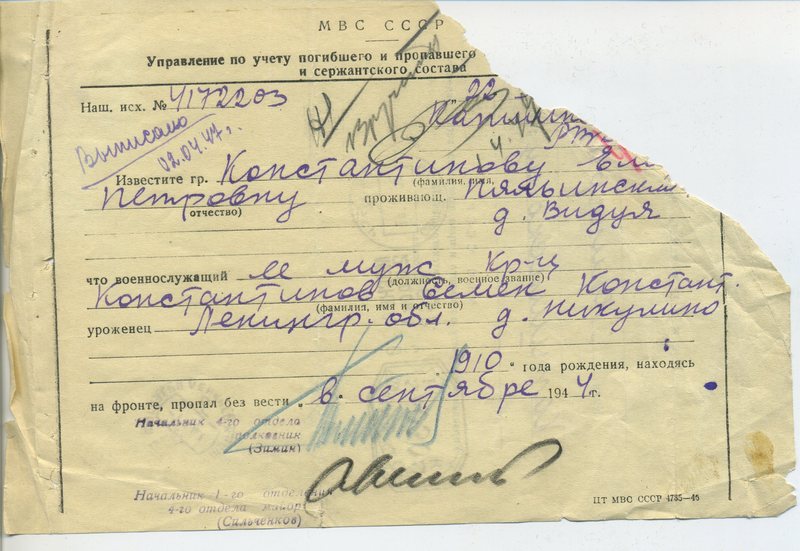 МВС СССР
Управление по учету погибшего и пропавшего
и сержантского состава
Наш. исх. № 4172203
22
Вручено
Выписано
02.04.47г.
Известите гр. Константинову
(фамилия, имя,
Петровну проживающ.
отчество)
д. Видуя
что военнослужащий ее муж кр-ц
(должность, военное звание)
Константинов Семен Констант.
(фамилия, имя и отчество)
уроженец Ленингр. обл. д. Никулино
910 года рождения, находясь
на фронте, пропал без вести „ в сентябре 1944 г.
Начальник 4-го отдела
полковник
(Зимин)
Начальник 1-го отделения
4-го отдела майор
(Сильченков)
ЦТ МВС СССР 4785-46